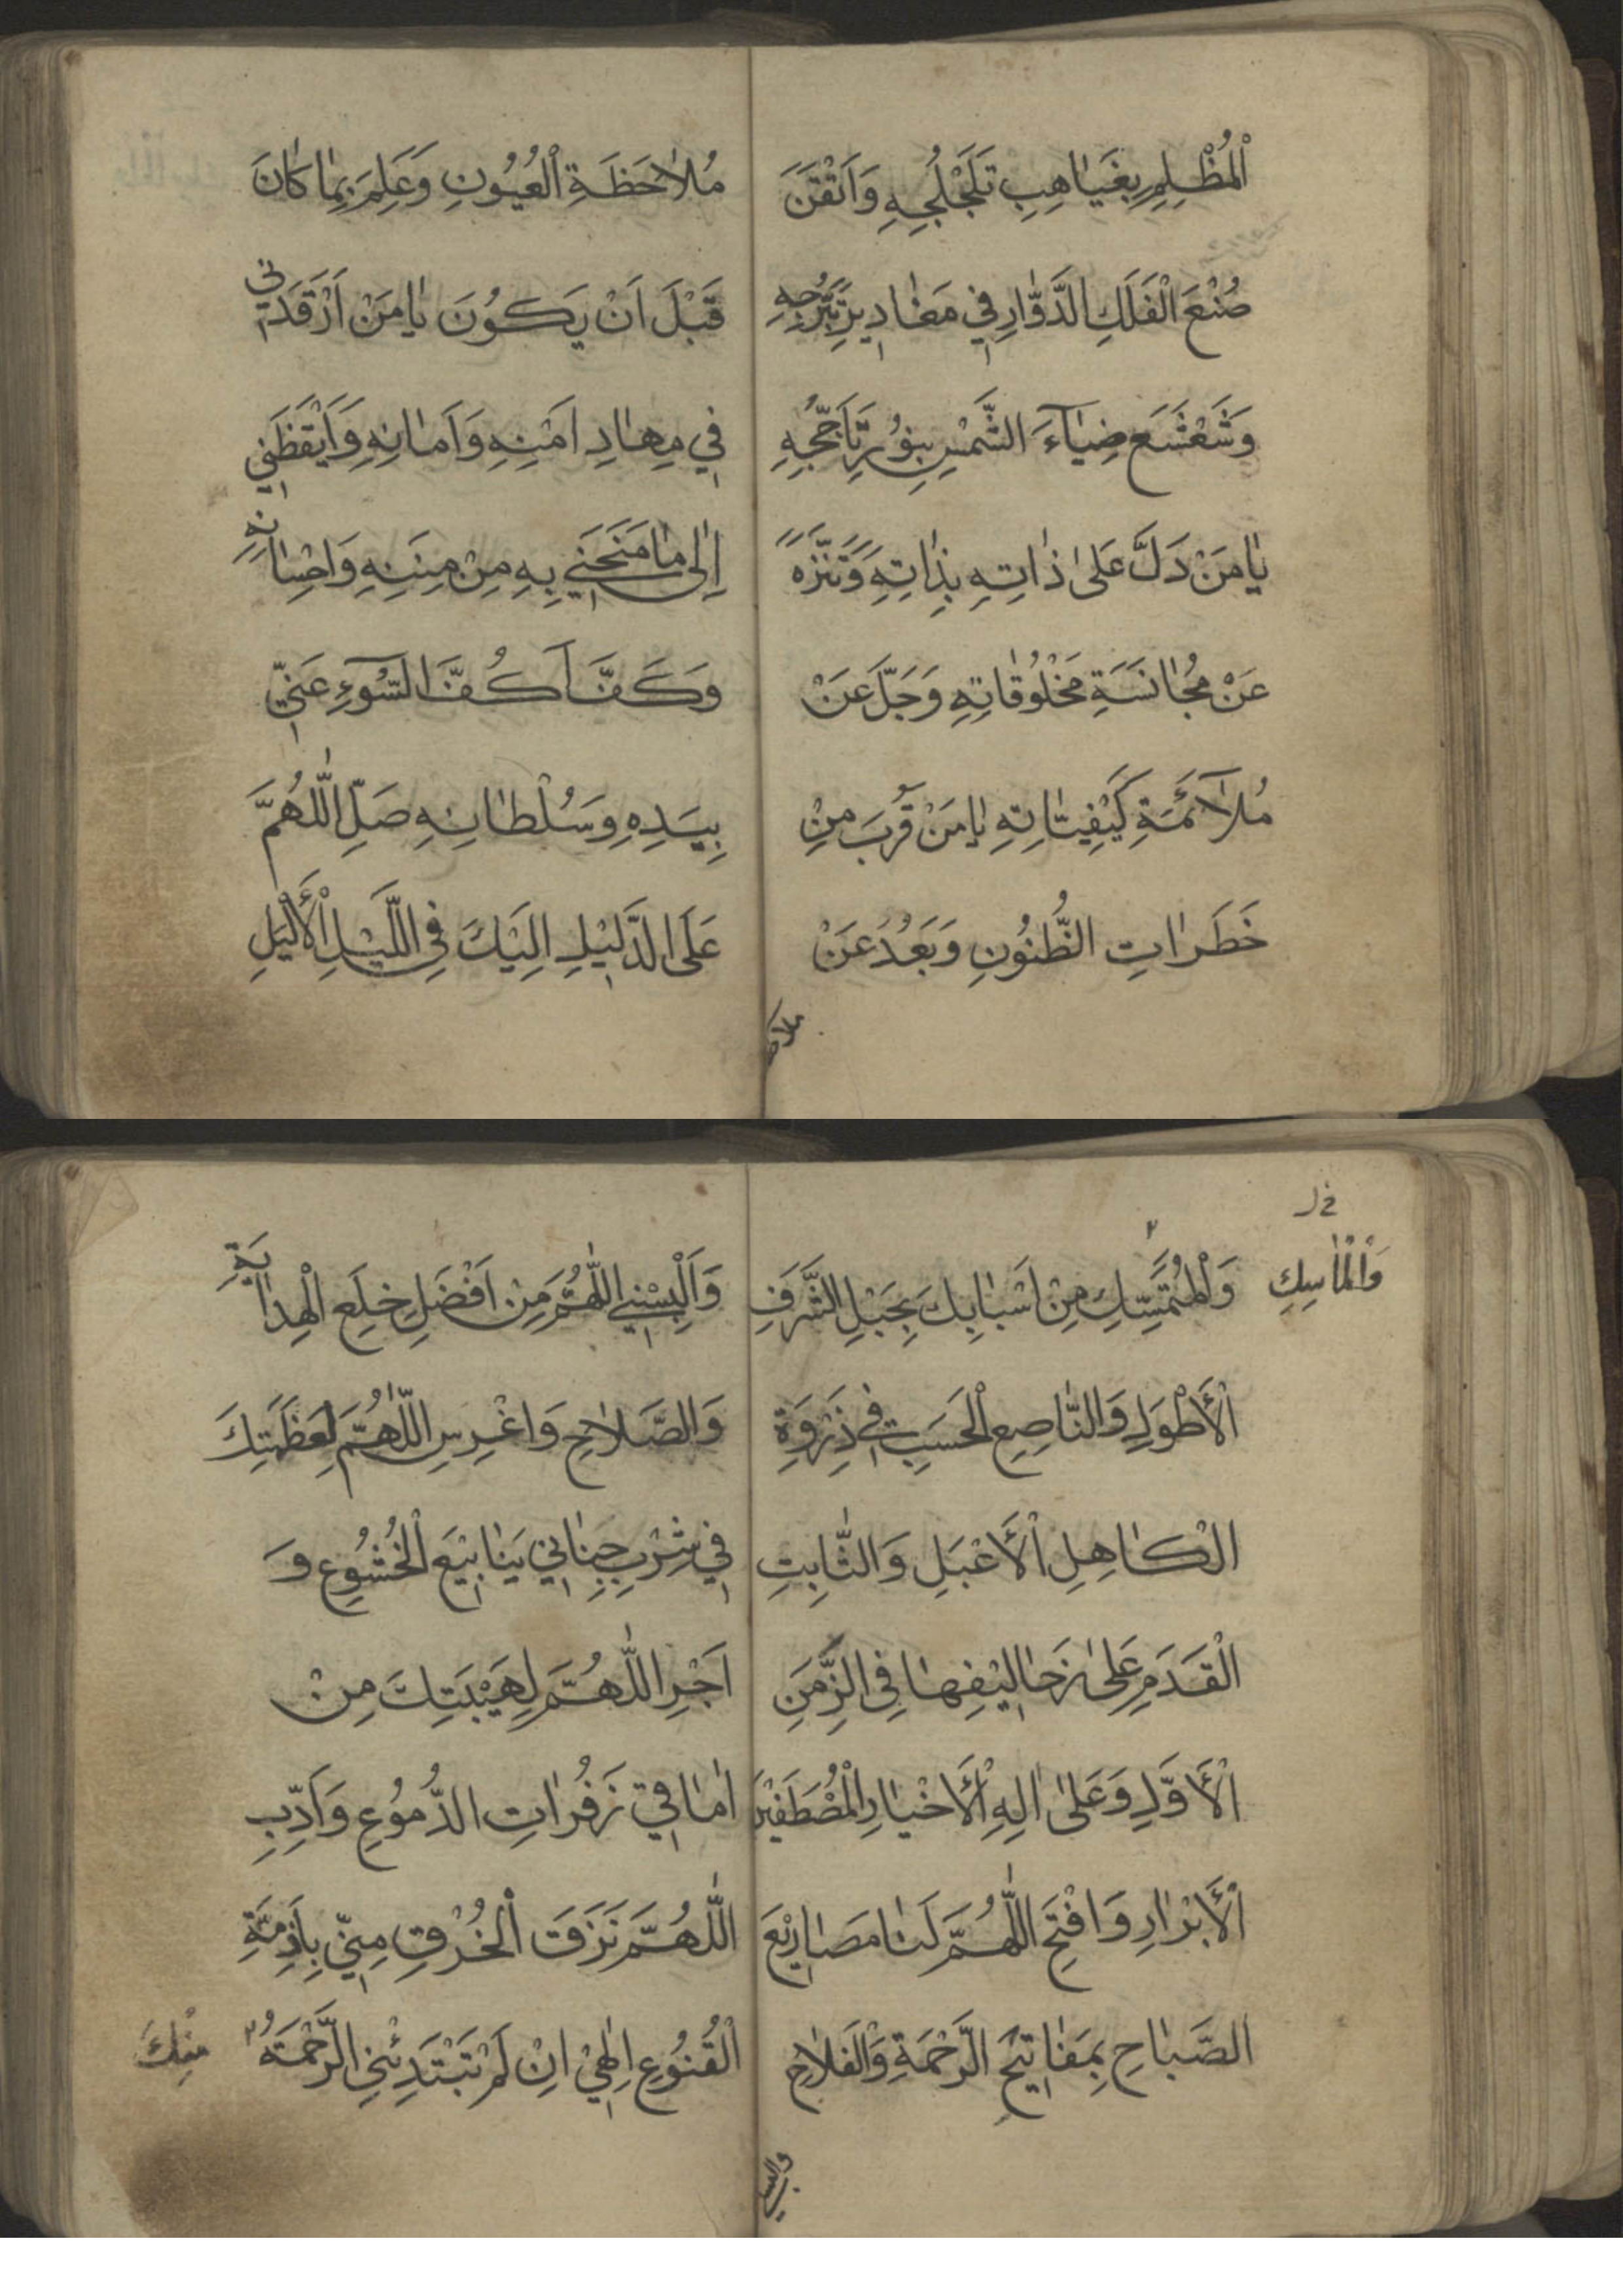 اَلْمُظْلِمِ بِغَيَاهِبِ تَلَجْلُجِهِ وَاَتْقَنَ
صُنْعَ الْفَلَكِ الدَّوَّارِ فِي مَقَادِيرِ تَبَرُّجِهِ
وَشَعْشَعَ ضِيَآءَ الشَّمْسِ بِنُورِ تَاَجُّجِهِ
يَا مَنْ دَلَّ عَلَى ذَاتِهِ بِذَاتِهِ وَتَنَزَّهَ
عَنْ مُجَانَسَةِ مَخْلُوقَاتِهِ وَجَلَّ عَنْ
مُلَآئَمَةِ كَيْفِيَّاتِهِ يَا مَنْ قَرُبَ مِنْ
خَطَرَاتِ الظُّنُونِ وَبَعُدَ عَنْ
ملاحظ
مُلَاحَظَةِ الْعُيُونِ وَعَلِمَ بِمَا كَانَ
قَبْلَ اَنْ يَكُونَ يَا مَنْ اَرْقَدَنِي
فِي مِهَادِ اَمْنِهِ وَاَمَانِهِ وَاَيْقَظَنِي
اِلَى مَا مَنَحَنِي بِهِ مِنْ مِنَنِهِ وَاِحْسَانِهِ
وَكَفَّ اَكُفَّ السُّوٓءِ عَنِّي
بِيَدِهِ وَسُلْطَانِهِ صَلِّ اللّٰهُمَّ
عَلَى الدَّلِيْلِ اِلَيْكَ فِي اللَّيْلِ الْأَلْيَلِ
خ ل
وَالْمَاسِكِ
وَالْمُتَمَسِّكِ مِنْ اَسْبَابِكَ بِحَبْلِ الشَّرَفِ
الْأَطْوَلِ وَالنَّاصِعِ الْحَسَبِ فِي ذِرْوَةِ
الْكَاهِلِ الْأَعْبَلِ وَالثَّابِتِ
الْقَدَمِ عَلَى زَحَالِيْفِهَا فِي الزَّمَنِ
الْأَوَّلِ وَعَلَى اٰلِهِ الْأَخْيَارِ الْمُصْطَفَيْنَ
الْأَبْرَارِ وَافْتَحِ اللّٰهُمَّ لَنَا مَصَارِيْعَ
الصَّبَاحِ بِمَفَاتِيْحِ الرَّحْمَةِ وَالْفَلَاحِ
والبسني
وَاَلْبِسْنِي اللّٰهُمَّ مِنْ اَفْضَلِ خِلَعِ الْهِدَايَةِ
وَالصَّلَاحِ وَاغْرِسِ اللّٰهُمَّ لِعَظَمَتِكَ
فِي شِرْبِ جِنَانِي يَنَابِيْعَ الْخُشُوعِ وَ
اَجْرِ اللّٰهُمَّ لِهَيْبَتِكَ مِنْ
اٰمَاقِي زَفَرَاتِ الدُّمُوعِ وَاَدِّبِ
اللّٰهُمَّ نَزَقَ الْخُرْقِ مِنِّي بِاَزِمَّةِ
الْقُنُوعِ اِلٰهِيْ اِنْ لَمْ تَبْتَدِئْنِي الرَّحْمَةُ
مِنْكَ